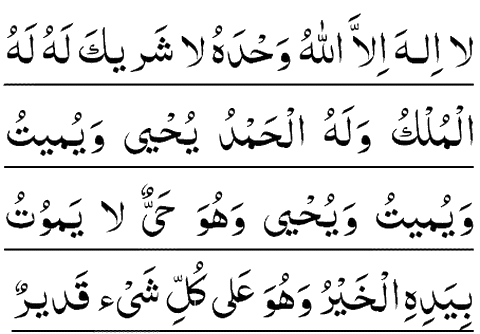 لا اِلـهَ اِلاَّ اللهُ وَحْدَهُ لا شَريكَ لَهُ لَهُ
الْمُلْكُ وَلَهُ الْحَمْدُ يُحْيى وَيُميتُ
وَيُميتُ وَيُحْيى وَهُوَ حَىٌّ لا يَموُتُ
بِيَدِهِ الْخَيْرُ وَهُوَ عَلى كُلِّ شَىْء قَديرٌ